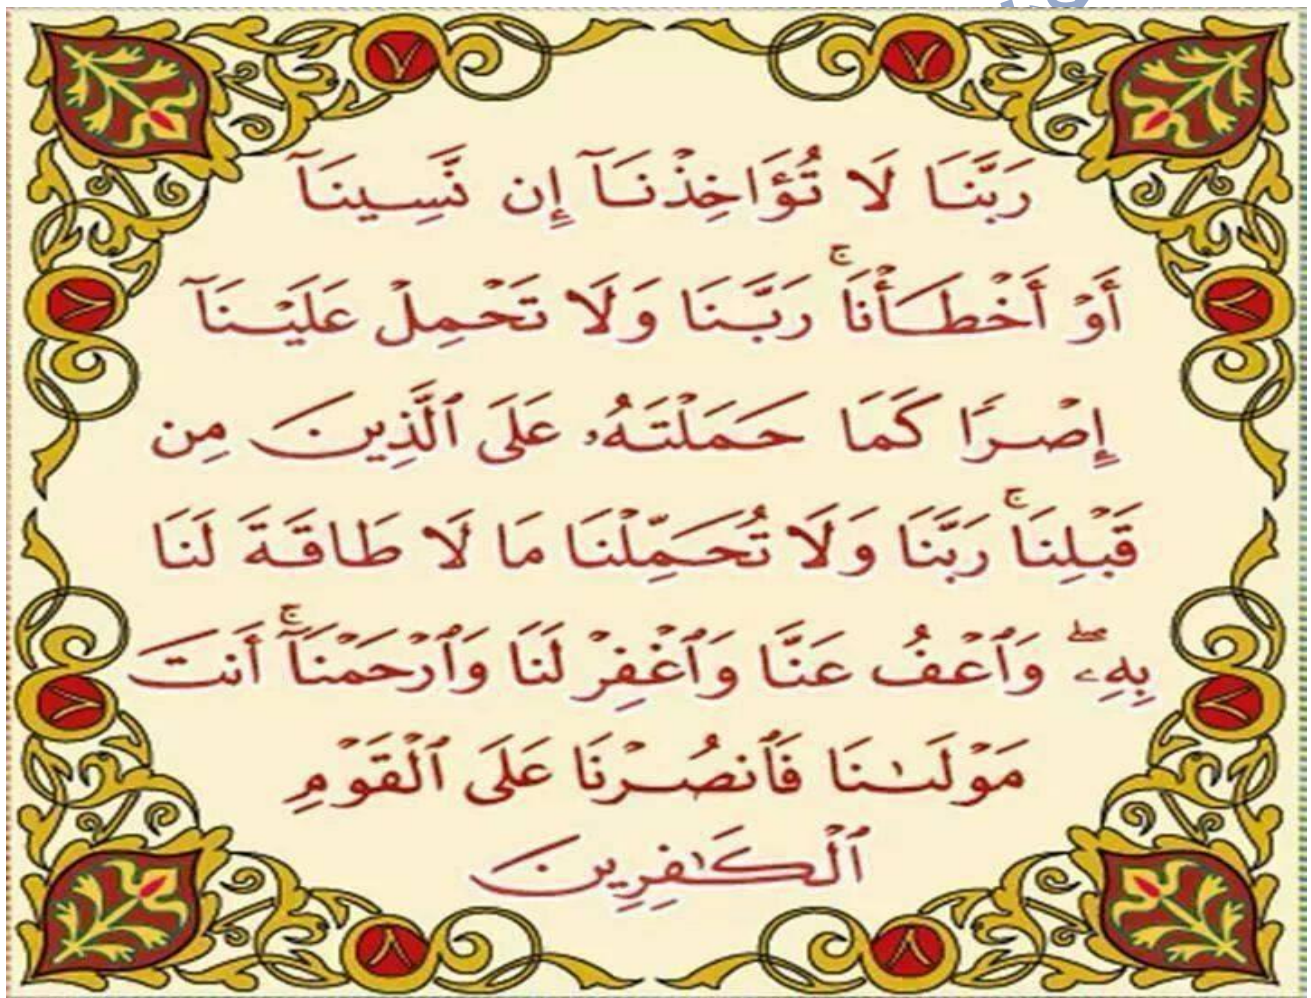 رَبَّنَا لَا تُؤَاخِذْنَآ إِن نَّسِينَآ
أَوْ أَخْطَأْنَاۚ رَبَّنَا وَلَا تَحْمِلْ عَلَيْنَآ
إِصْرًا كَمَا حَمَلْتَهُۥ عَلَى ٱلَّذِينَ مِن
قَبْلِنَاۚ رَبَّنَا وَلَا تُحَمِّلْنَا مَا لَا طَاقَةَ لَنَا
بِهِۦۖ وَٱعْفُ عَنَّا وَٱغْفِرْ لَنَا وَٱرْحَمْنَآۚ أَنتَ
مَوْلَىٰنَا فَٱنصُرْنَا عَلَى ٱلْقَوْمِ
ٱلْكَٰفِرِينَ